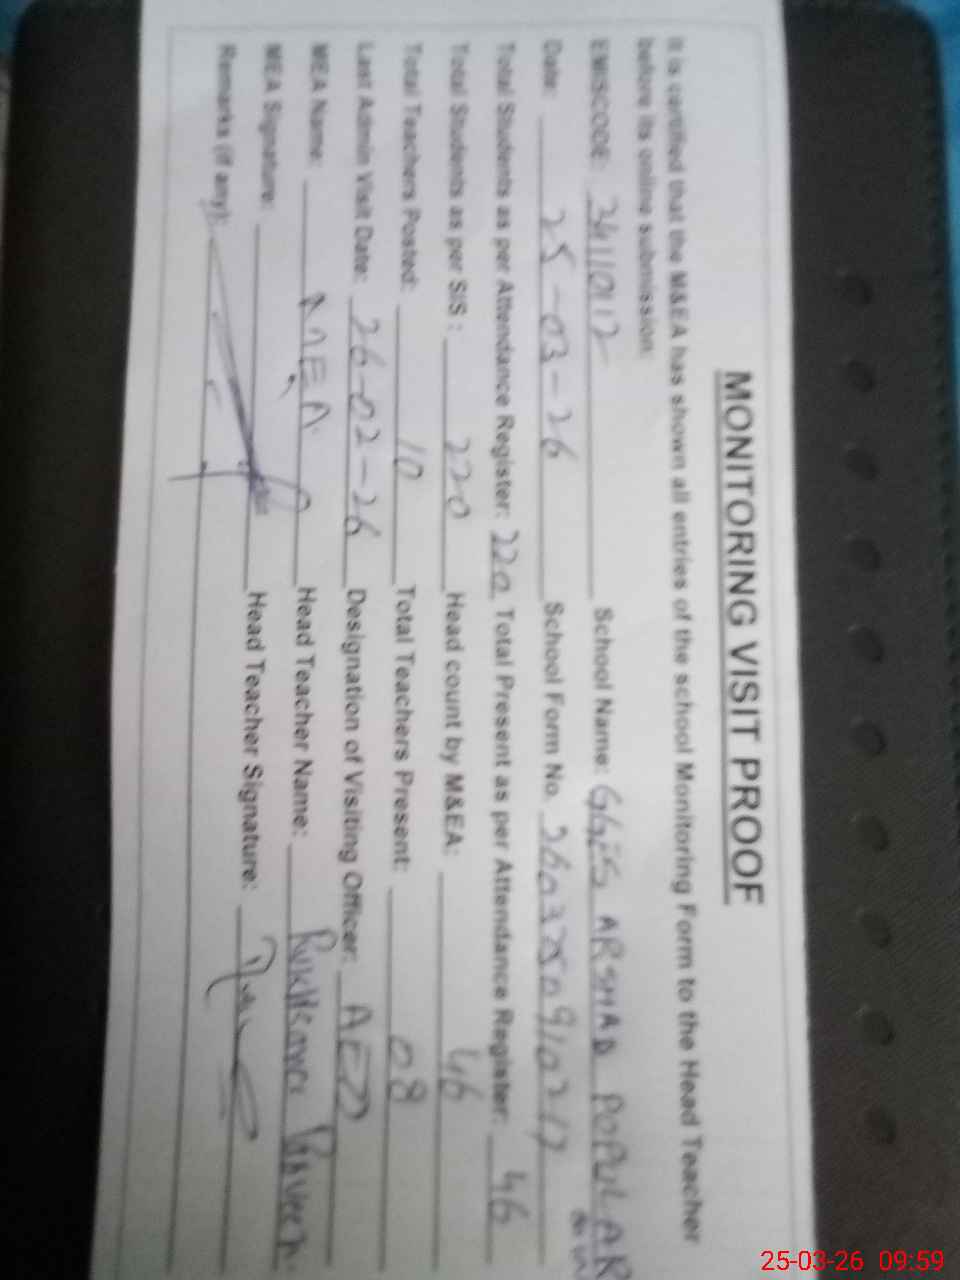 MONITORING VISIT PROOF
It is certified that the M&EA has shown all entries of the school Monitoring Form to the Head Teacher
before its online submission:
EMISCODE: 34110112 School Name: GGES ARSHAD POPULAR
Date: 25-03-26 School Form No.
Total Students as per Attendance Register: 220 Total Present as per Attendance Register: 46
Total Students as per SIS : 220 Head count by M&EA: 46
Total Teachers Posted: 10 Total Teachers Present: 08
Last Admin Visit Date: 26-02-26 Designation of Visiting Officer: AEO
MEA Name: MEA Head Teacher Name: Parveen
MEA Signature: Head Teacher Signature:
Remarks (if any):
25-03-26 09:59